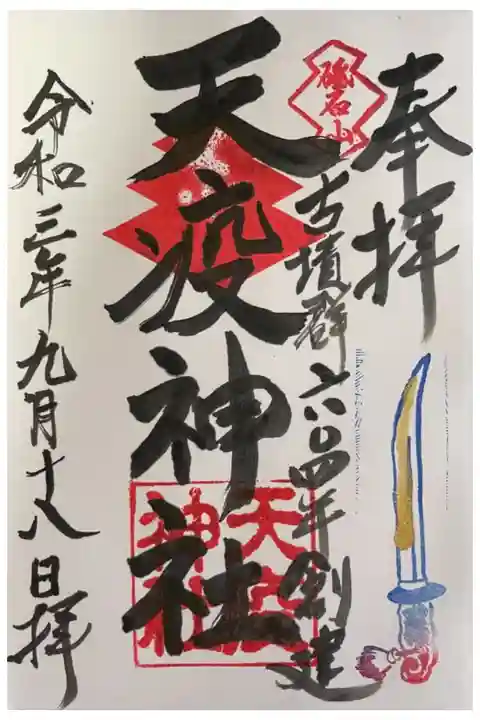 奉拝
磯石山
古墳群六〇四年創建
天疫神社
天疫神社
令和三年九月十八日拝